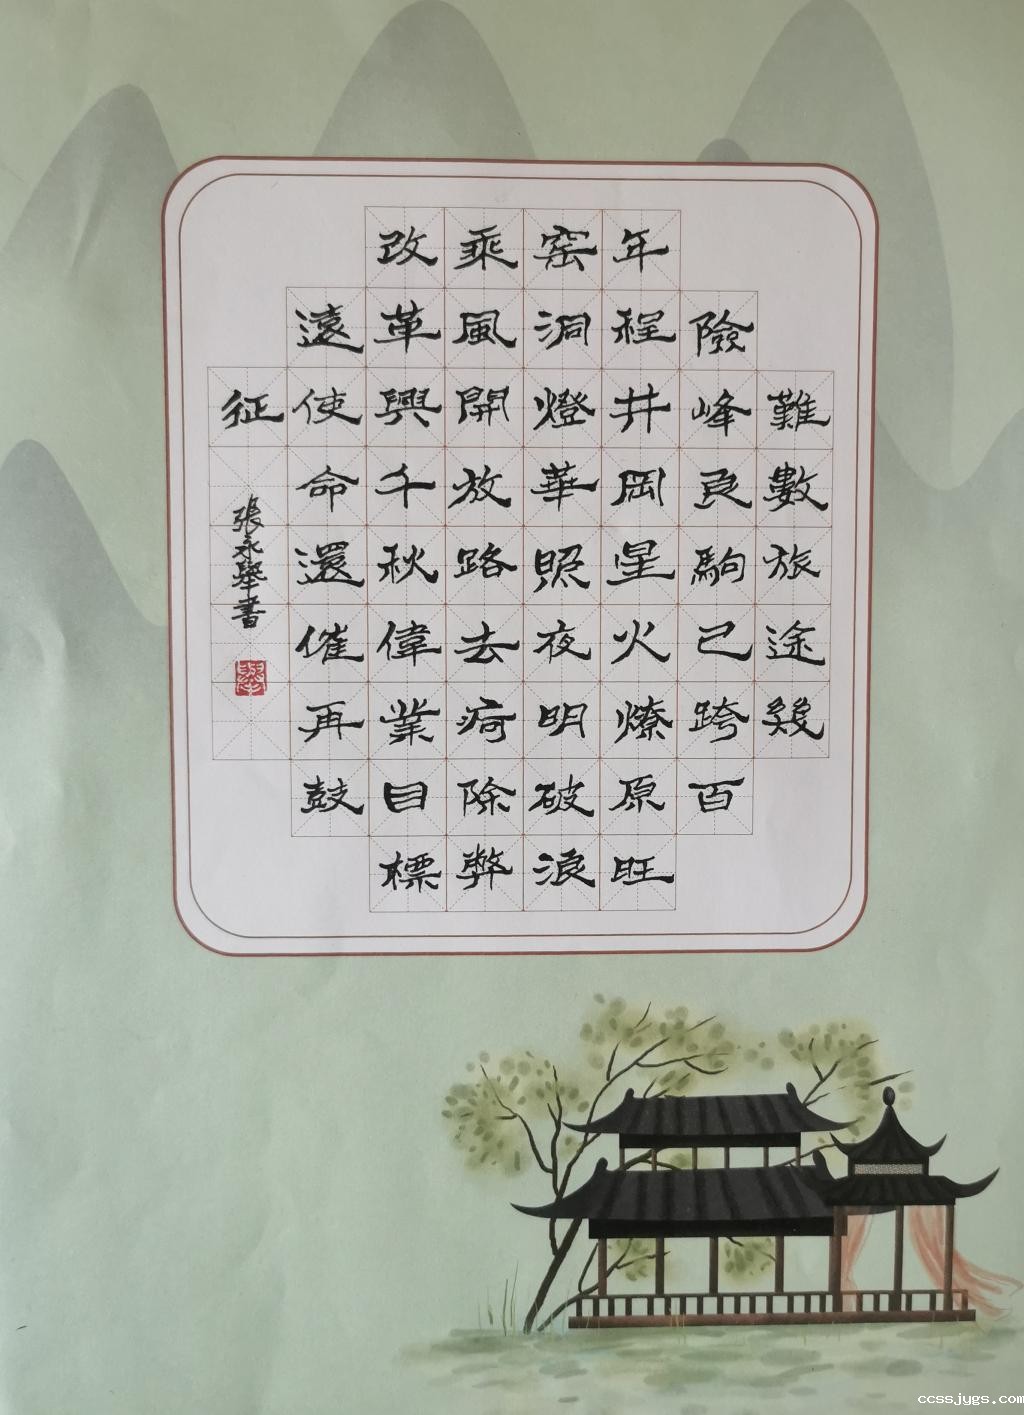 難數旅途幾
險峰良駒已跨百
年程井岡星火燎原旺
窑洞燈華照夜明破浪
乘風開放路去疴除弊
改革興千秋偉業目標
遠使命還催再鼓
征
張永舉書
ccssjygs.com